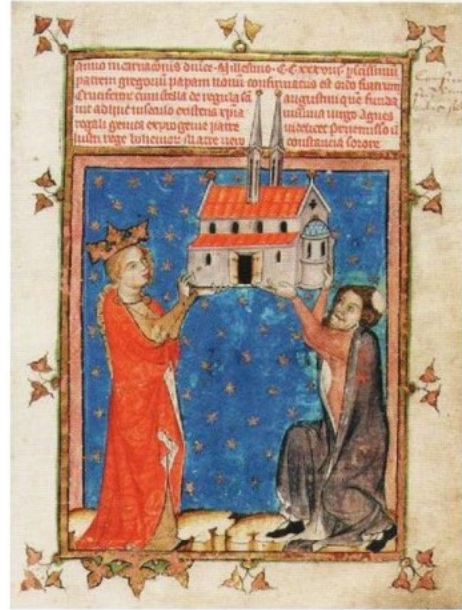 anno incarnacionis dnice Millesimo CC xxxvii p
patrem gregoriu papam nonu confirmatus est ordo fratrum
Cruciferor cum stella de regula sci augustini que funda
vit adhuc in seculo existens xpia nissima virgo Agnes
regali genita ex progenie patre videlicet Przemislo il
lustri rege bohemor Matre vero constancia sorore